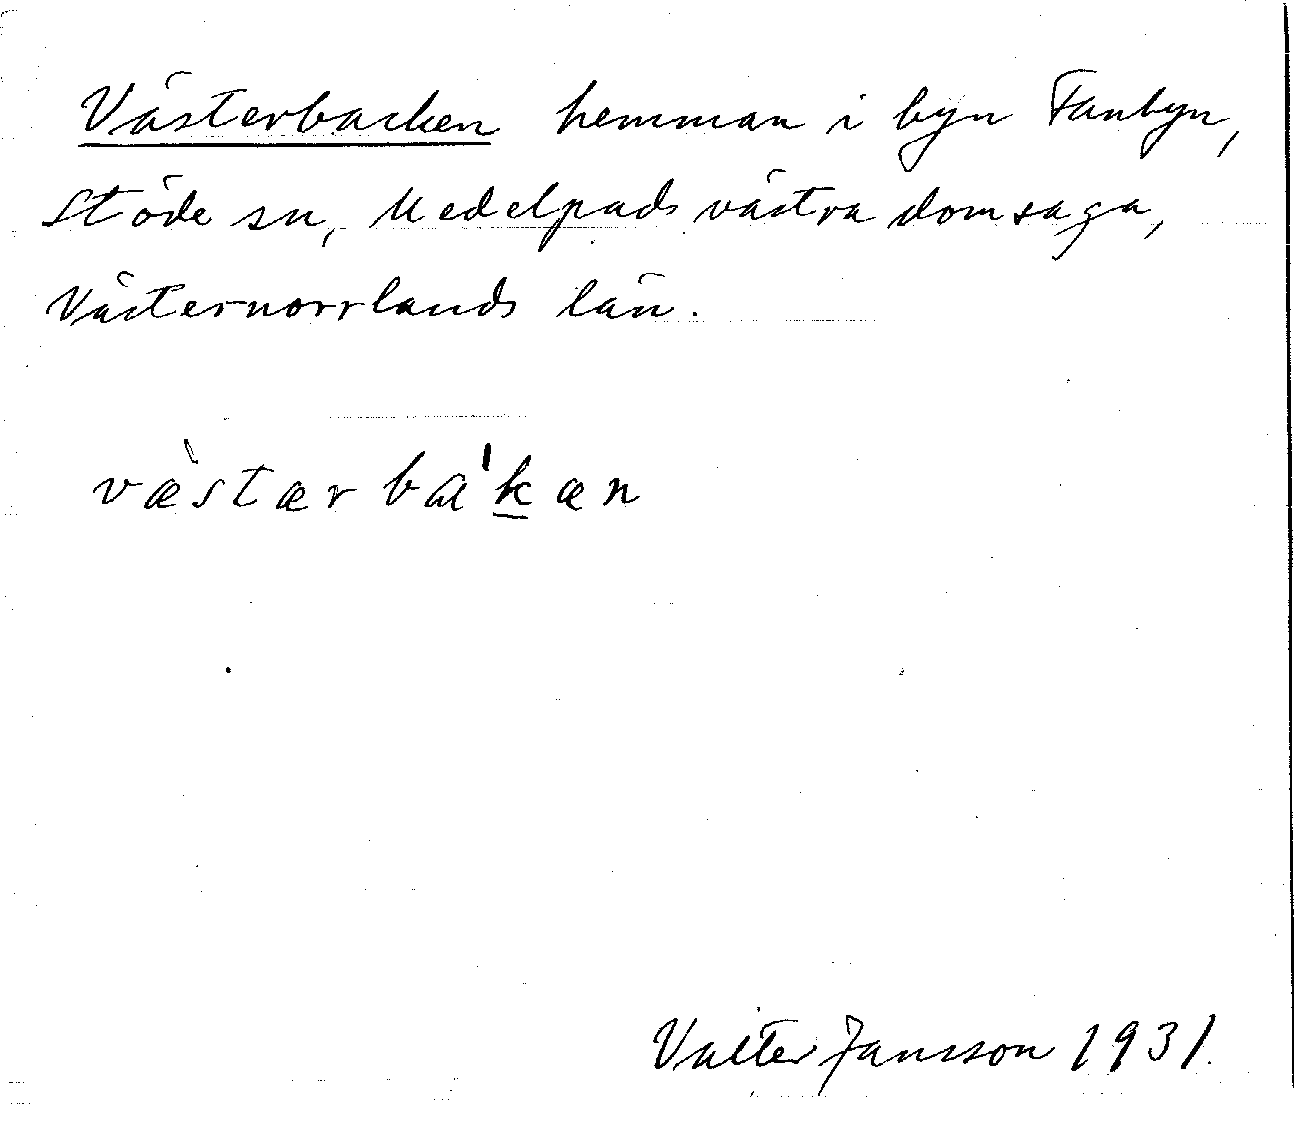 Västerbacken hemman i byn Fanbyn,
Stöde sn, Medelpads västra domsaga,
Västernorrlands län.
væ̀stærba'k̲æn
Valter Jansson 1931.